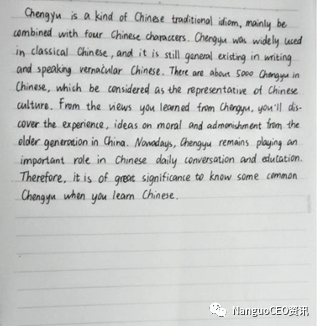 Chengyu is a kind of Chinese traditional idiom, mainly be
combined with four Chinese characters. Chengyu was widely used
in classical Chinese, and it is still general existing in writing
and speaking vernacular Chinese. There are about 5000 Chengyu in
Chinese, which be considered as the representative of Chinese
culture. From the views you learned from Chengyu, you'll dis-
cover the experience, ideas on moral and admonishment from the
older generation in China. Nowadays, Chengyu remains playing an
important role in Chinese daily conversation and education.
Therefore, it is of great significance to know some common
Chengyu when you learn Chinese.
NanguoCEO资讯